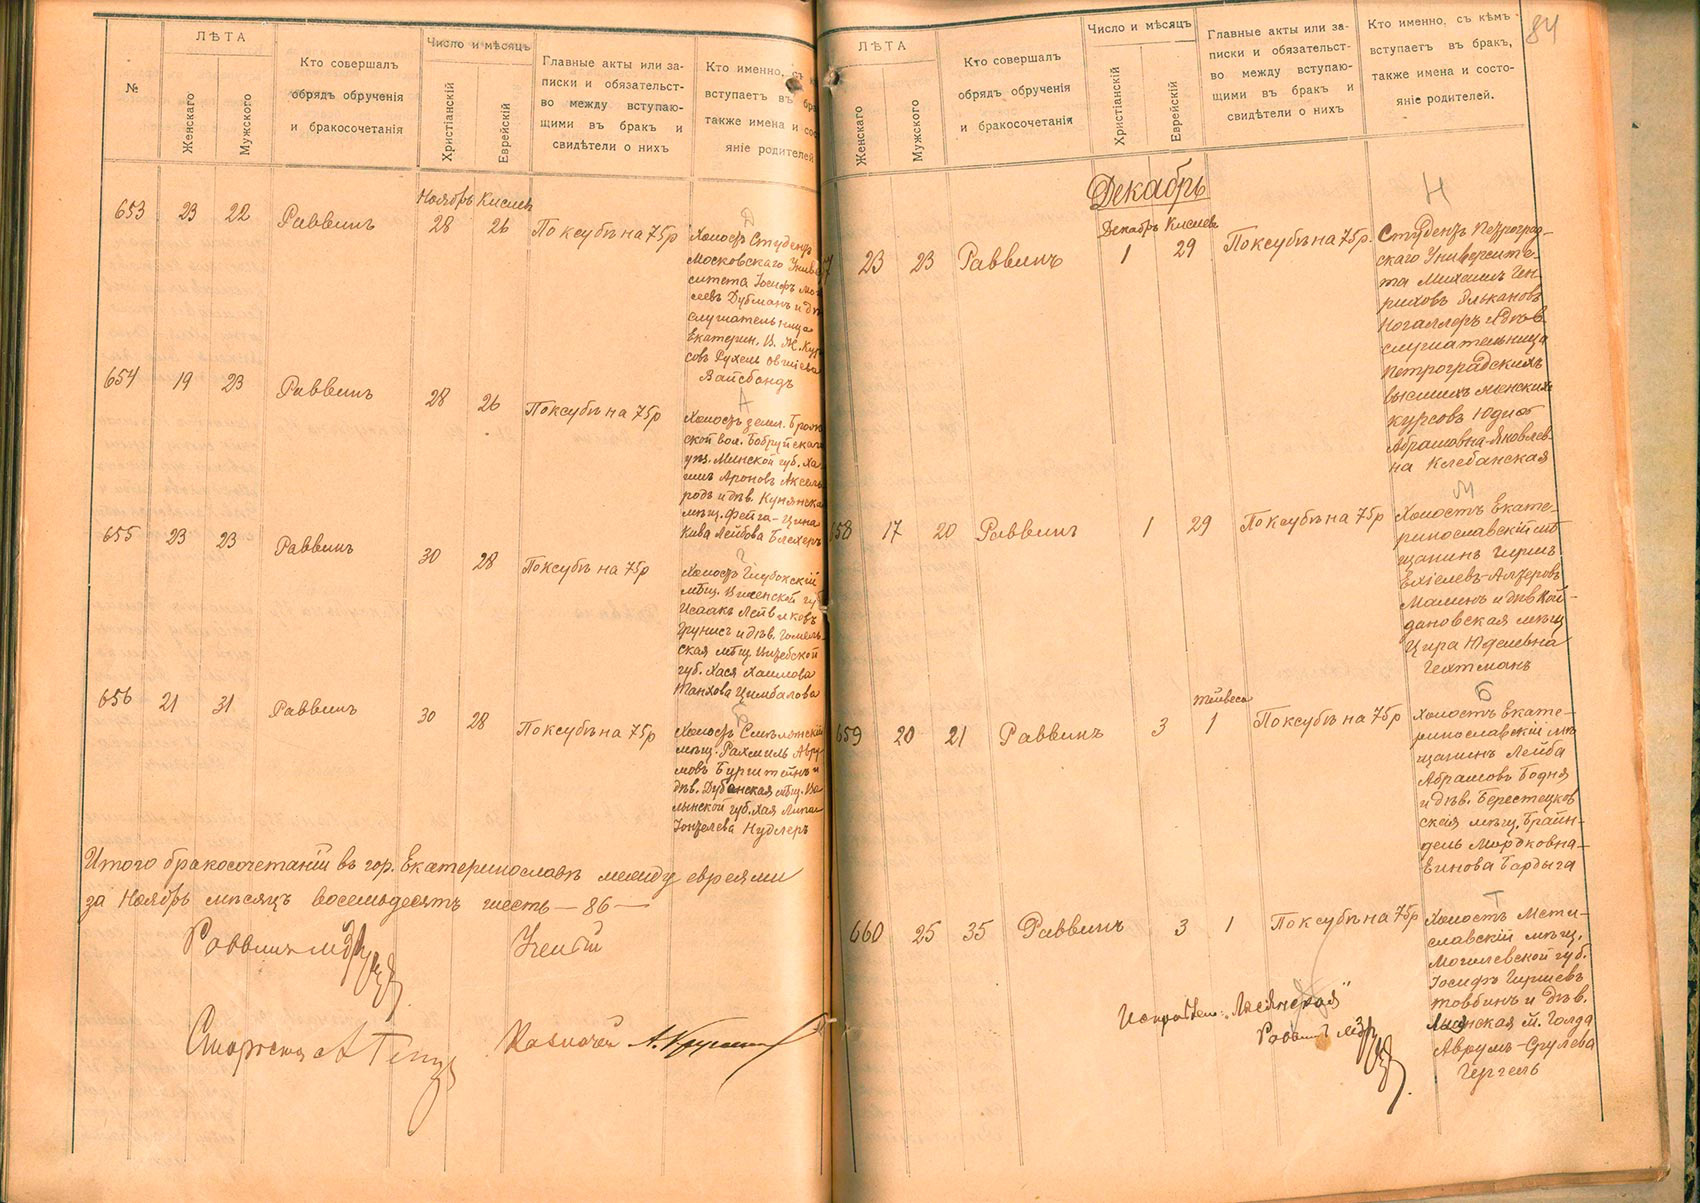 №
ЛѢТА
Женскаго
Мужского
Кто совершалъ
обрядъ обрученія
и бракосочетанія
Число и мѣсяцъ
Христіанскій
Еврейскій
Главные акты или за-
писки и обязательст-
во между вступаю-
щими въ бракъ и
свидѣтели о нихъ
Кто именно, съ
вступаетъ въ
также имена и
яніе родителей
Ноябрь Кислевъ
653 23 22 Раввинъ 28 26 По ксубѣ на 75р
Д
Холостъ Студентъ
Московскаго Униве
ситета Іосифъ
левъ Дубманъ и дѣв
слушательница
Екатерин. В. Ж. Кур
совъ Рухель
Вайсбандъ
654 19 23 Раввинъ 28 26 По ксубѣ на 75р
А
Холостъ земл.
ской вол. Бобруйскаго
уѣз. Минской губ. Ха
имъ Ароновъ Аксель
родъ и дѣв.
мѣщ. Фейга-
Кива Лейбова Блехеръ
655 23 23 Раввинъ 30 28 По ксубѣ на 75р
Г
Холостъ Глубокскій
мѣщ. Виленской губ
Исаакъ
и дѣв. Гомель
ская мѣщ.
губ. Хася Хаимова
Цимбалова
656 21 31 Раввинъ 30 28 По ксубѣ на 75р
Б
Холостъ Смѣлянскій
мѣщ. Рахмиль Авру
мовъ Бурштейнъ и
дѣв. Дубенская мѣщ. Во
лынской губ. Хая
Нудлеръ
Итого бракосочетаній въ гор. Екатеринославѣ между евреями
за Ноябрь мѣсяцъ восемьдесятъ шесть — 86 —
Раввинъ
Ученый
Староста
Казначей
84
ЛѢТА
Женскаго
Мужского
Кто совершалъ
обрядъ обрученія
и бракосочетанія
Число и мѣсяцъ
Христіанскій
Еврейскій
Главные акты или за-
писки и обязательст-
во между вступаю-
щими въ бракъ и
свидѣтели о нихъ
Кто именно, съ кѣмъ
вступаетъ въ бракъ,
также имена и состо-
яніе родителей.
Декабрь
Декабрь Кислевъ
7 23 23 Раввинъ 1 29 По ксубѣ на 75р.
Н
Студентъ Петроград-
скаго Университе-
та Михаилъ Ген-
риховъ Элькановъ
Ногаллеръ и дѣв.
слушательница
Петроградскихъ
высшихъ женскихъ
курсовъ Юдиѳ
Абрамовна-Яковлев-
на Клебанская
658 17 20 Раввинъ 1 29 По ксубѣ на 75р
М
Холостъ Екате-
ринославскій мѣ
щанинъ Гиршъ
Ехіелевъ-
и дѣв Кой-
дановская мѣщ
Цира Юделевна
Гехтманъ
Тейвеса
659 20 21 Раввинъ 3 1 По ксубѣ на 75р
Б
Холостъ Екате-
ринославскій мѣ
щанинъ Лейба
Абрамовъ Бодня
и дѣв. Берестецков
ская мѣщ. Брайн-
дель Мордковна-
Бардыга
660 25 35 Раввинъ 3 1 По ксубѣ на 75р
Т
Холостъ Мсти-
славскій мѣщ.
Могилевской губ.
Іосифъ Гиршевъ
Товбинъ и дѣв.
м. Голда
Аврумъ-Срулева
Гергель
Раввинъ